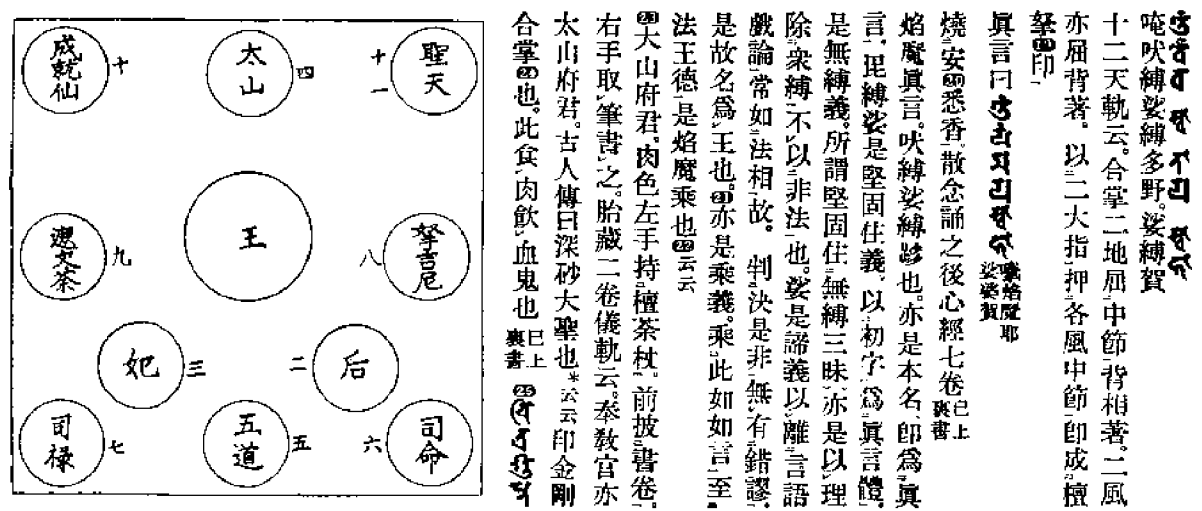 唵吠縛娑縛多野。娑縛賀
十二天軌云。合掌二地屈中節背相著。二風
亦屈背著。以二大指押各風中節即成檀
拏印
眞言曰 焰魔耶 娑婆賀
燒安悉香。散念誦之後心經七卷已上裏書
焰魔眞言。吠縛娑縛哆也。亦是本名即爲眞
言。毘縛娑是堅固住義。以初字爲眞言體。
是無縛義。所謂堅固住無縛三昧亦是以理
除衆縛不以非法也。娑是諦義以離言語
戲論常如法相故。判決是非無有錯謬。
是故名爲王也。㉑亦是乘義。乘此如如言至
法王德是焰魔乘也㉒云云
㉓大山府君。肉色左手持檀荼杖。前披書卷。
右手取筆書之。胎藏二卷儀軌云。奉教官亦
太山府君。古人傳曰深砂大聖也云云印金剛
合掌㉔也。此食肉飮血鬼也已上裏書㉕
聖天 十一
太山 四
成就仙 十
王
拏吉尼 八
遮文荼 九
后 二
妃 三
司命 六
五道 五
司祿 七